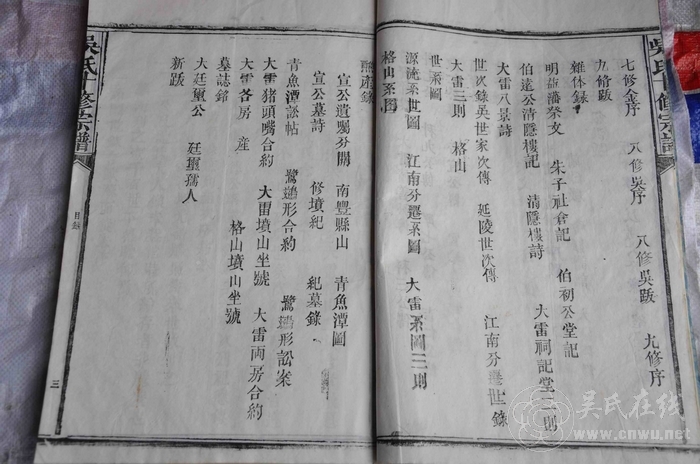 七修金序 八修吳序 八修吳跋 九修序
九脩跋
雜体录
明誼藩祭文 朱子社倉記 伯初公堂記
伯達公清隱樓記 清隱樓詩 大雷祠記堂二則
大雷八景詩
世次録吳世家次傳 延陵世次傳 江南分遷世錄
大雷三則 格山
世系圖
源流系世圖 江南分遷系圖 大雷系圖二則
格山系圖
宣公遺嘱分關 南豐縣山 青魚潭圖
宣公墓詩 修墳紀 紀墓錄
青魚潭訟帖 鷺鷀形合約 鷺鷀形訟案
大雷猪頭嘴合約 大雷墳山坐號 大雷両房合約
大雷各房产 格山墳山坐號
墓誌銘
大廷璽公 廷璽孺人
新跋
目錄
三
吳氏 修宗譜
吴氏在线
www.cnwu.net